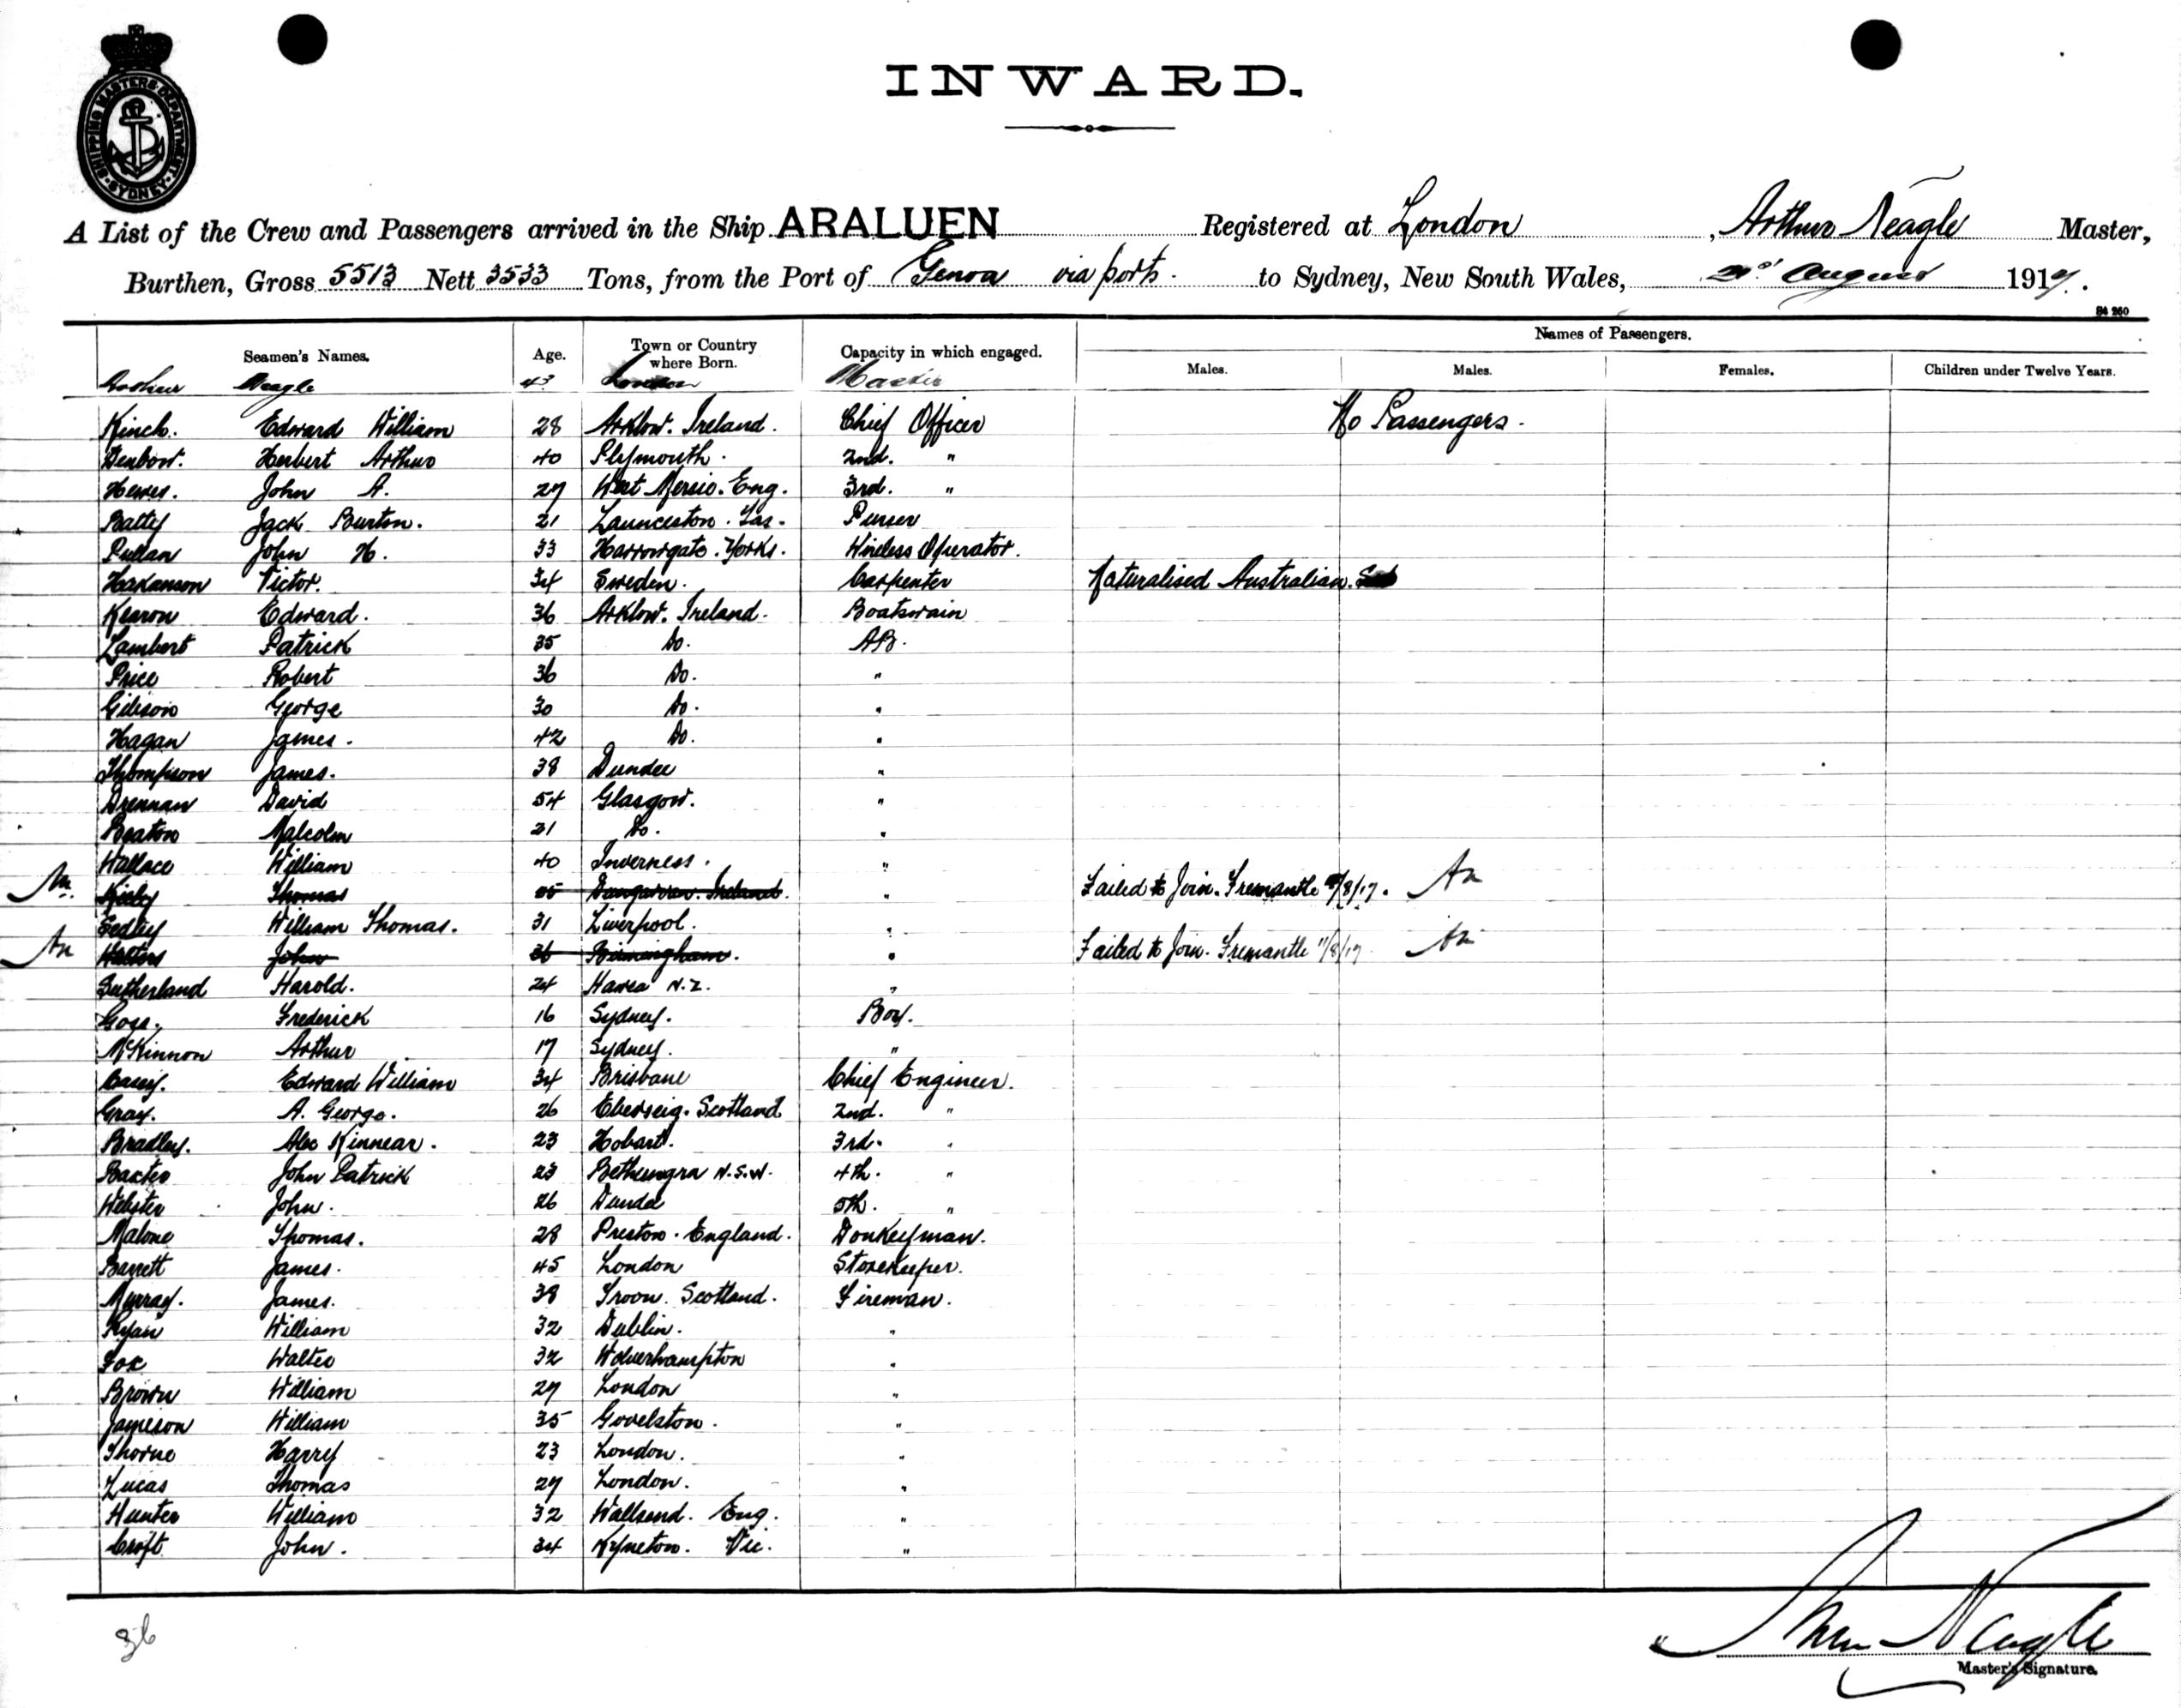 SHIPPING MASTERS DEPARTMENT SYDNEY
INWARD.
A List of the Crew and Passengers arrived in the Ship ARALUEN Registered at London, Arthur Neagle Master,
Burthen, Gross 5513 Nett 3533 Tons, from the Port of Genoa via ports. to Sydney, New South Wales, August 1917.
Seamen's Names. Age. Town or Country where Born. Capacity in which engaged. Names of Passengers.
Males. Males. Females. Children under Twelve Years.
Arthur Neagle 43 London Master
Kinch. Edward William 28 Arklow. Ireland. Chief Officer No Passengers.
Denbow. Herbert Arthur 40 Plymouth. 2nd. "
Hewes. John A. 27 West Mersio. Eng. 3rd. "
Batty Jack Burton. 21 Launceston. Tas. Purser
Pullan John H. 33 Harrowgate. Yorks. Wireless Operator.
Hakanson Victor. 34 Sweden. Carpenter Naturalised Australian.
Kearon Edward. 36 Arklow. Ireland. Boatswain
Lambert Patrick 35 Do. AB.
Price Robert 36 Do. "
Gibson George 30 Do. "
Hagan James. 42 Do. "
Thompson James. 38 Dundee "
Drennan David 54 Glasgow. "
Beaton Malcolm 21 Do. "
Wallace William 40 Inverness. "
Thomas Dungarvan. Ireland. " Failed to Join. Fremantle /8/17.
Sedley William Thomas. 31 Liverpool. "
Walters John 36 Birmingham. " Failed to Join. Fremantle 11/8/17
Sutherland Harold. 24 Hawea N.Z. "
Goss. Frederick 16 Sydney. Boy.
McKinnon Arthur 17 Sydney. "
Casey. Edward William 34 Brisbane Chief Engineer.
Gray. A. George. 26 Scotland 2nd. "
Bradley. Alec Kinnear. 23 Hobart. 3rd. "
Baxter John Patrick 23 Bethungra N.S.W. 4th. "
Webster John. 26 Dundee 5th. "
Malone Thomas. 28 Preston. England. Donkeyman.
Barrett James. 45 London Storekeeper.
Murray. James. 38 Troon. Scotland. Fireman.
Ryan William 32 Dublin. "
Fox Walter 32 Wolverhampton "
Brown William 27 London "
Jameson William 35 Govelston. "
Thorne Harry 23 London. "
Lucas Thomas 27 London. "
Hunter William 32 Wallsend. Eng. "
Croft John. 34 Kyneton. Vic. "
36
Arthur Neagle
Master's Signature.